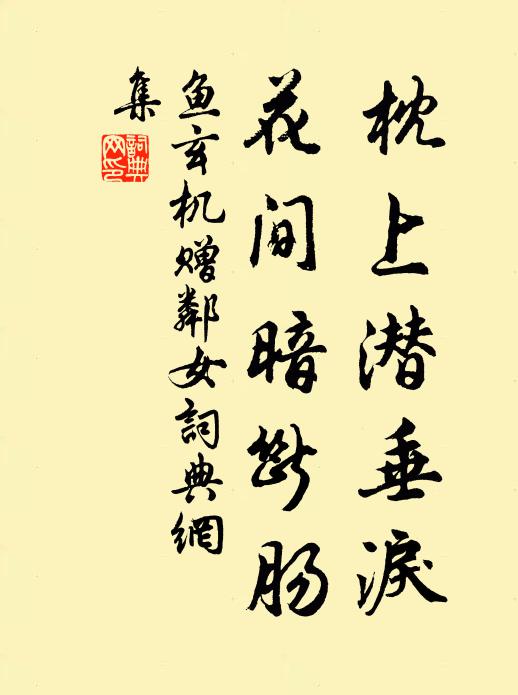 枕上潜垂淚
花间暗斷肠
鱼玄机赠鄰女詞典網
集
詞典
网印